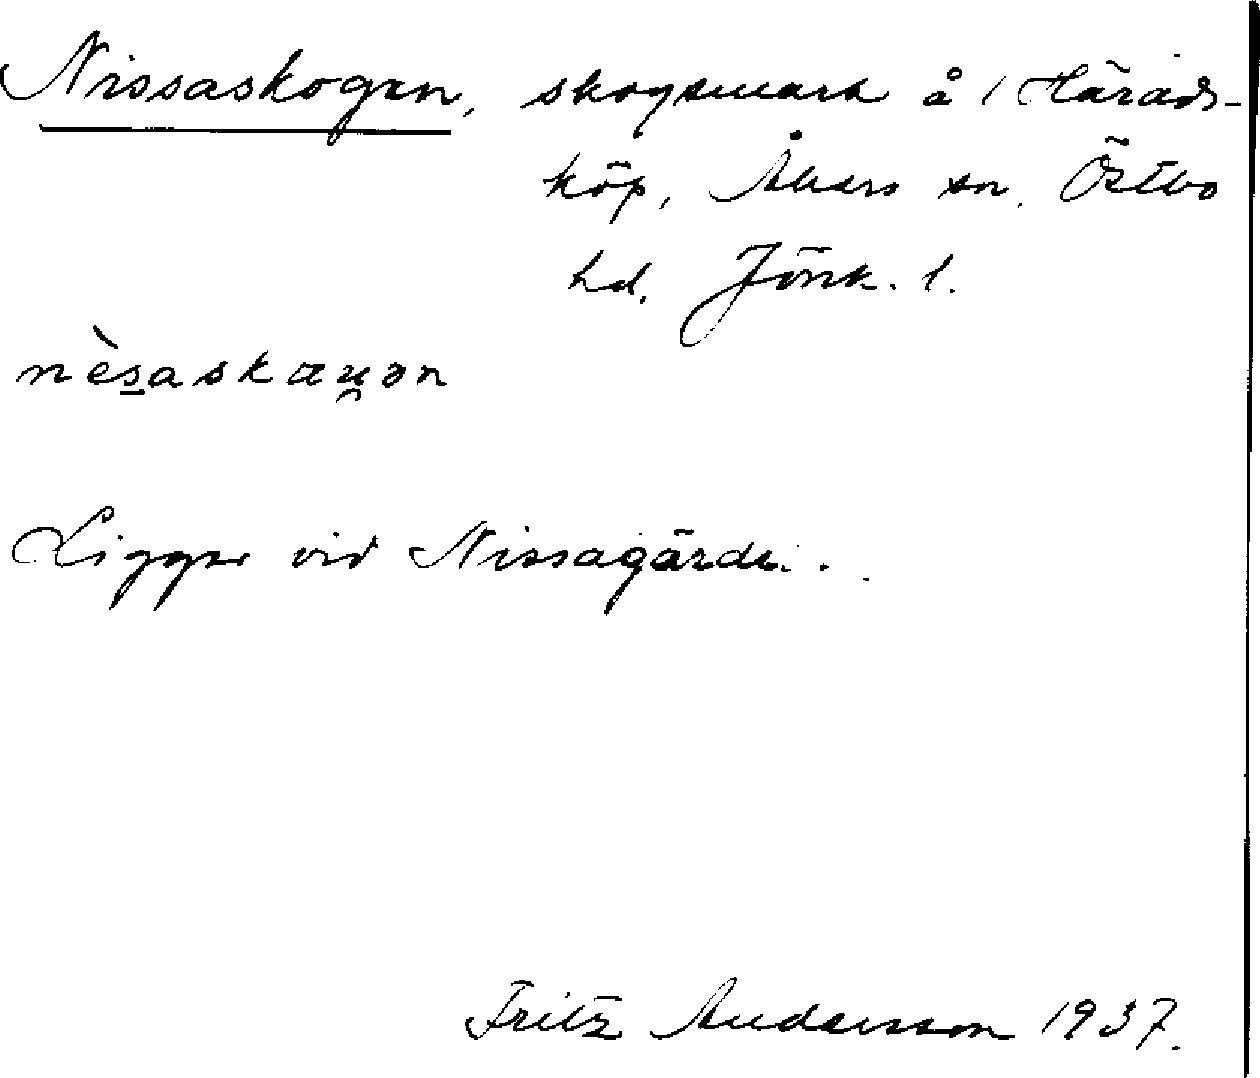 Nissaskogen, skogsmark å 1 Härads-
köp, Åkers sn. Östbo
hd. Jönk. l.
nèsaskæu̯ən
Ligger vid Nissagärde.
Fritz Andersson 1937.